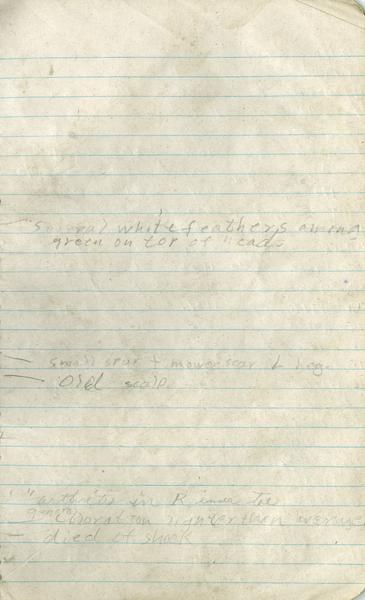 "several white feathers among
green on top of head
small spur + mower scar L leg
Old scalp
"arthritis in R inner toe
general coloration lighter than average
died of shock